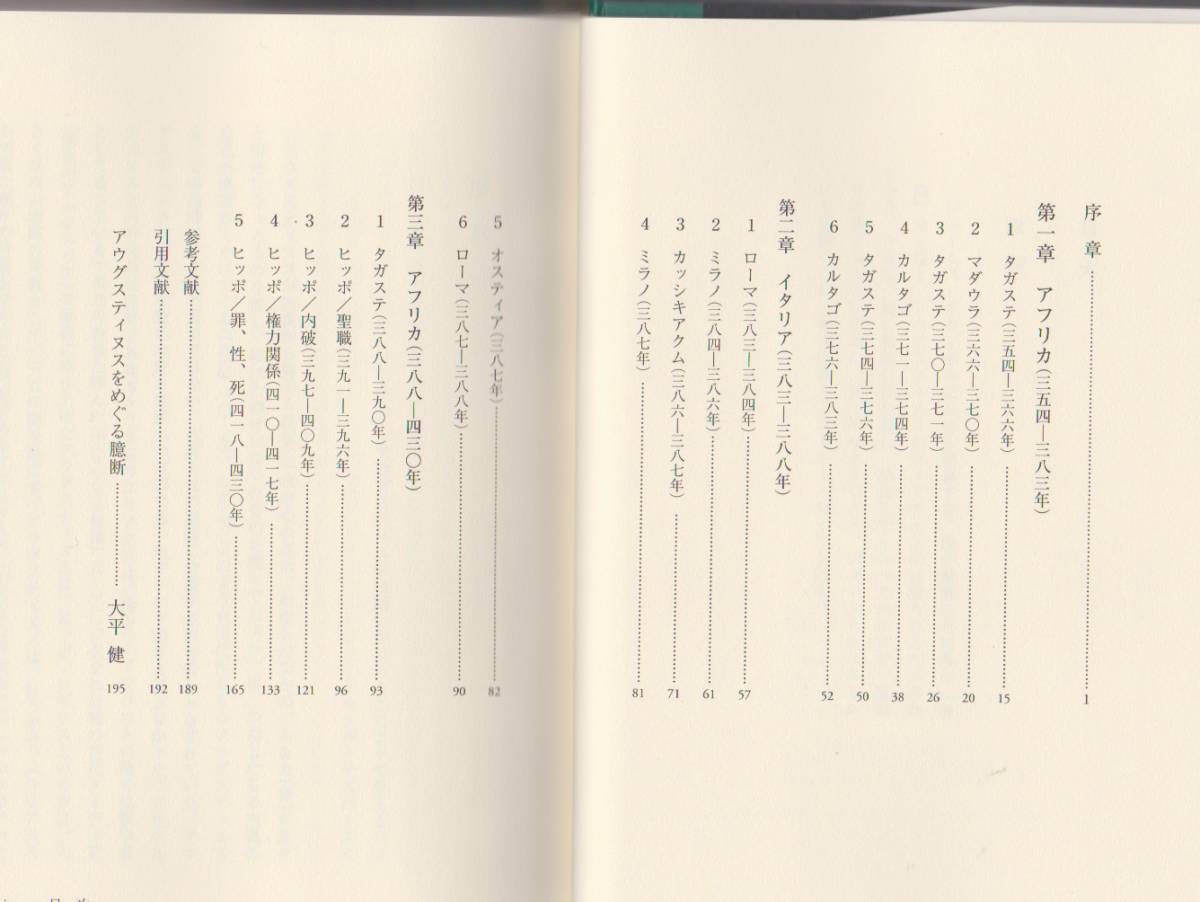 序　章……………………1
第一章　アフリカ（三五四―三八三年）
1　タガステ（三五四―三六六年）……………………15
2　マダウラ（三六六―三七〇年）……………………20
3　タガステ（三七〇―三七一年）……………………26
4　カルタゴ（三七一―三七四年）……………………38
5　タガステ（三七四―三七六年）……………………50
6　カルタゴ（三七六―三八三年）……………………52
第二章　イタリア（三八三―三八八年）
1　ローマ（三八三―三八四年）……………………57
2　ミラノ（三八四―三八六年）……………………61
3　カッシキアクム（三八六―三八七年）……………………71
4　ミラノ（三八七年）……………………81
5　オスティア（三八七年）……………………82
6　ローマ（三八七―三八八年）……………………90
第三章　アフリカ（三八八―四三〇年）
1　タガステ（三八八―三九〇年）……………………93
2　ヒッポ／聖職（三九一―三九六年）……………………96
3　ヒッポ／内破（三九七―四〇九年）……………………121
4　ヒッポ／権力関係（四一〇―四一七年）……………………133
5　ヒッポ／罪、性、死（四一八―四三〇年）……………………165
参考文献……………………189
引用文献……………………192
アウグスティヌスをめぐる臆断……………大平　健　195